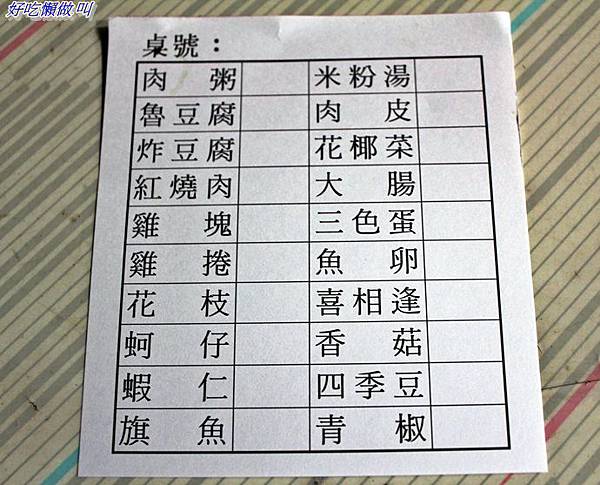 好吃懶做叫
桌號：
肉粥 米粉湯
魯豆腐 肉皮
炸豆腐 花椰菜
紅燒肉 大腸
雞塊 三色蛋
雞捲 魚卵
花枝 喜相逢
蚵仔 香菇
蝦仁 四季豆
旗魚 青椒